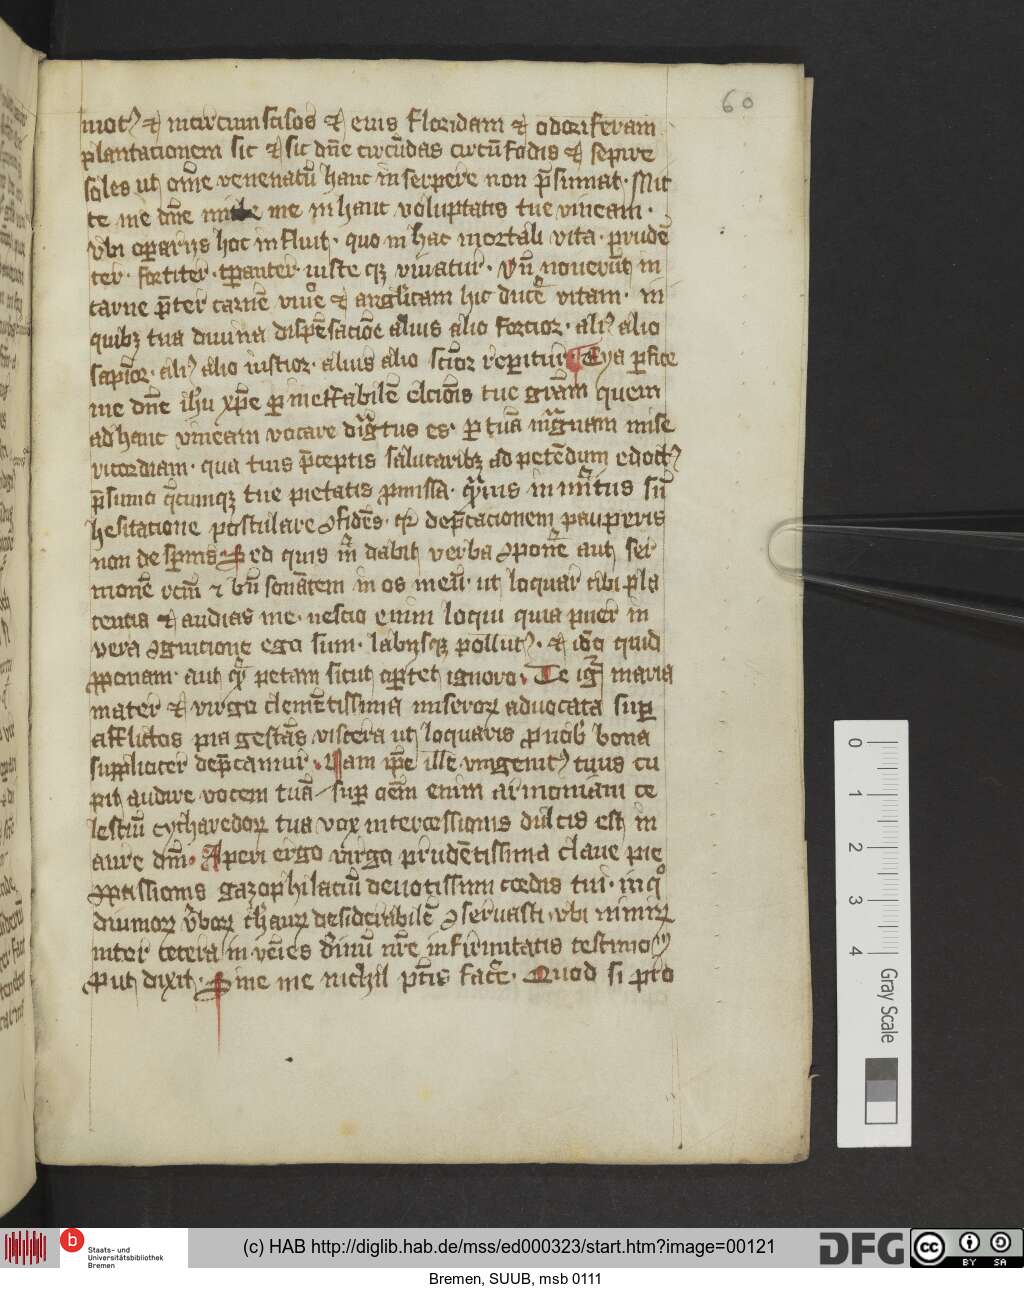 60
mot⁹ et incircumscisos et eius floridam et odoriferam
plantacionem sic et sic dn̄e circūdas circū fodis et sepire
soles ut om̄e venenatū hanc in serpere non p̄sumat · Mit
te me dn̄e me in hanc voluptatis tue vineam ·
vbi oꝑarijs hoc influit · quo in hac mortali vita · prudē
ter · fortiter · tꝑanter · iuste qꝫ viuatur · Vn̄ nouerūt in
carne p̄ter carnē viuͤe et anglicam hic ducͤe vitam · in
quibꝫ tua diuina dispēsacōe alius alio forcior · ali⁹ alio
sapīor · ali⁹ alio iustior · alius alio scīor reperitur · Eya ꝑfice
me dn̄e ihū xp̄e ꝑ ineffabilē elcōis tue grām quem
ad hanc vineam vocare dignatus es · ꝑ tuā magnam mise
ricordiam · qua tuis p̄ceptis salutaribꝫ ad petēdum edoct⁹
p̄sumo qͥcumqꝫ tue pietatis ꝓmissa · prius inmritus sn̄
hesitacione postulare ꝯfidēs · qꝛ dep̄cacionem pauperis
non de spernis Sed quis mͥ dabit verba ꝯponēe aut ser
monē rcm̄ ⁊ bn̄ sonātem in os meū · ut loquar tibi pla
centia et audias me · nescio enim loqui quia puer in
vera ꝯgnicione ego sum · labijsqꝫ pollut⁹ · et iōo quid
ꝓponam · aut qͥ petam sicut oꝑtet ignoro · Te igͥ maria
mater et virgo clemētissima miseroꝝ aduocata suꝑ
afflictos pia gestās viscera ut loquaris ꝓ nob̄ bona
suppliciter dep̄camur · Nam ip̄e ille vnigenit⁹ tuus cu
pit audire vocem tuā suꝑ oēm enim armoniam ce
lestiū cytharedoꝝ tua vox intercessionis dulcis est in
aure dn̄i · Aperi ergo virgo prudētissima claue pie
ꝯpassionis gazophilaciū deuotissimi cordis tui · in qͦ
diuinoꝝ v̄boꝝ th̄auꝝ desiderabilē ꝯseruasti · vbi nimiꝝ
inter cetera inveīes diuinū nr̄e infirmitatis testimo
Put dixit · Sine me nichil pt̄is facͤe · Quod si ꝓto
0 1 2 3 4
Gray Scale
b
Staats- und
Universitätsbibliothek
Bremen
(c) HAB http://diglib.hab.de/mss/ed000323/start.htm?image=00121
DFG
cc
BY SA
Bremen, SUUB, msb 0111